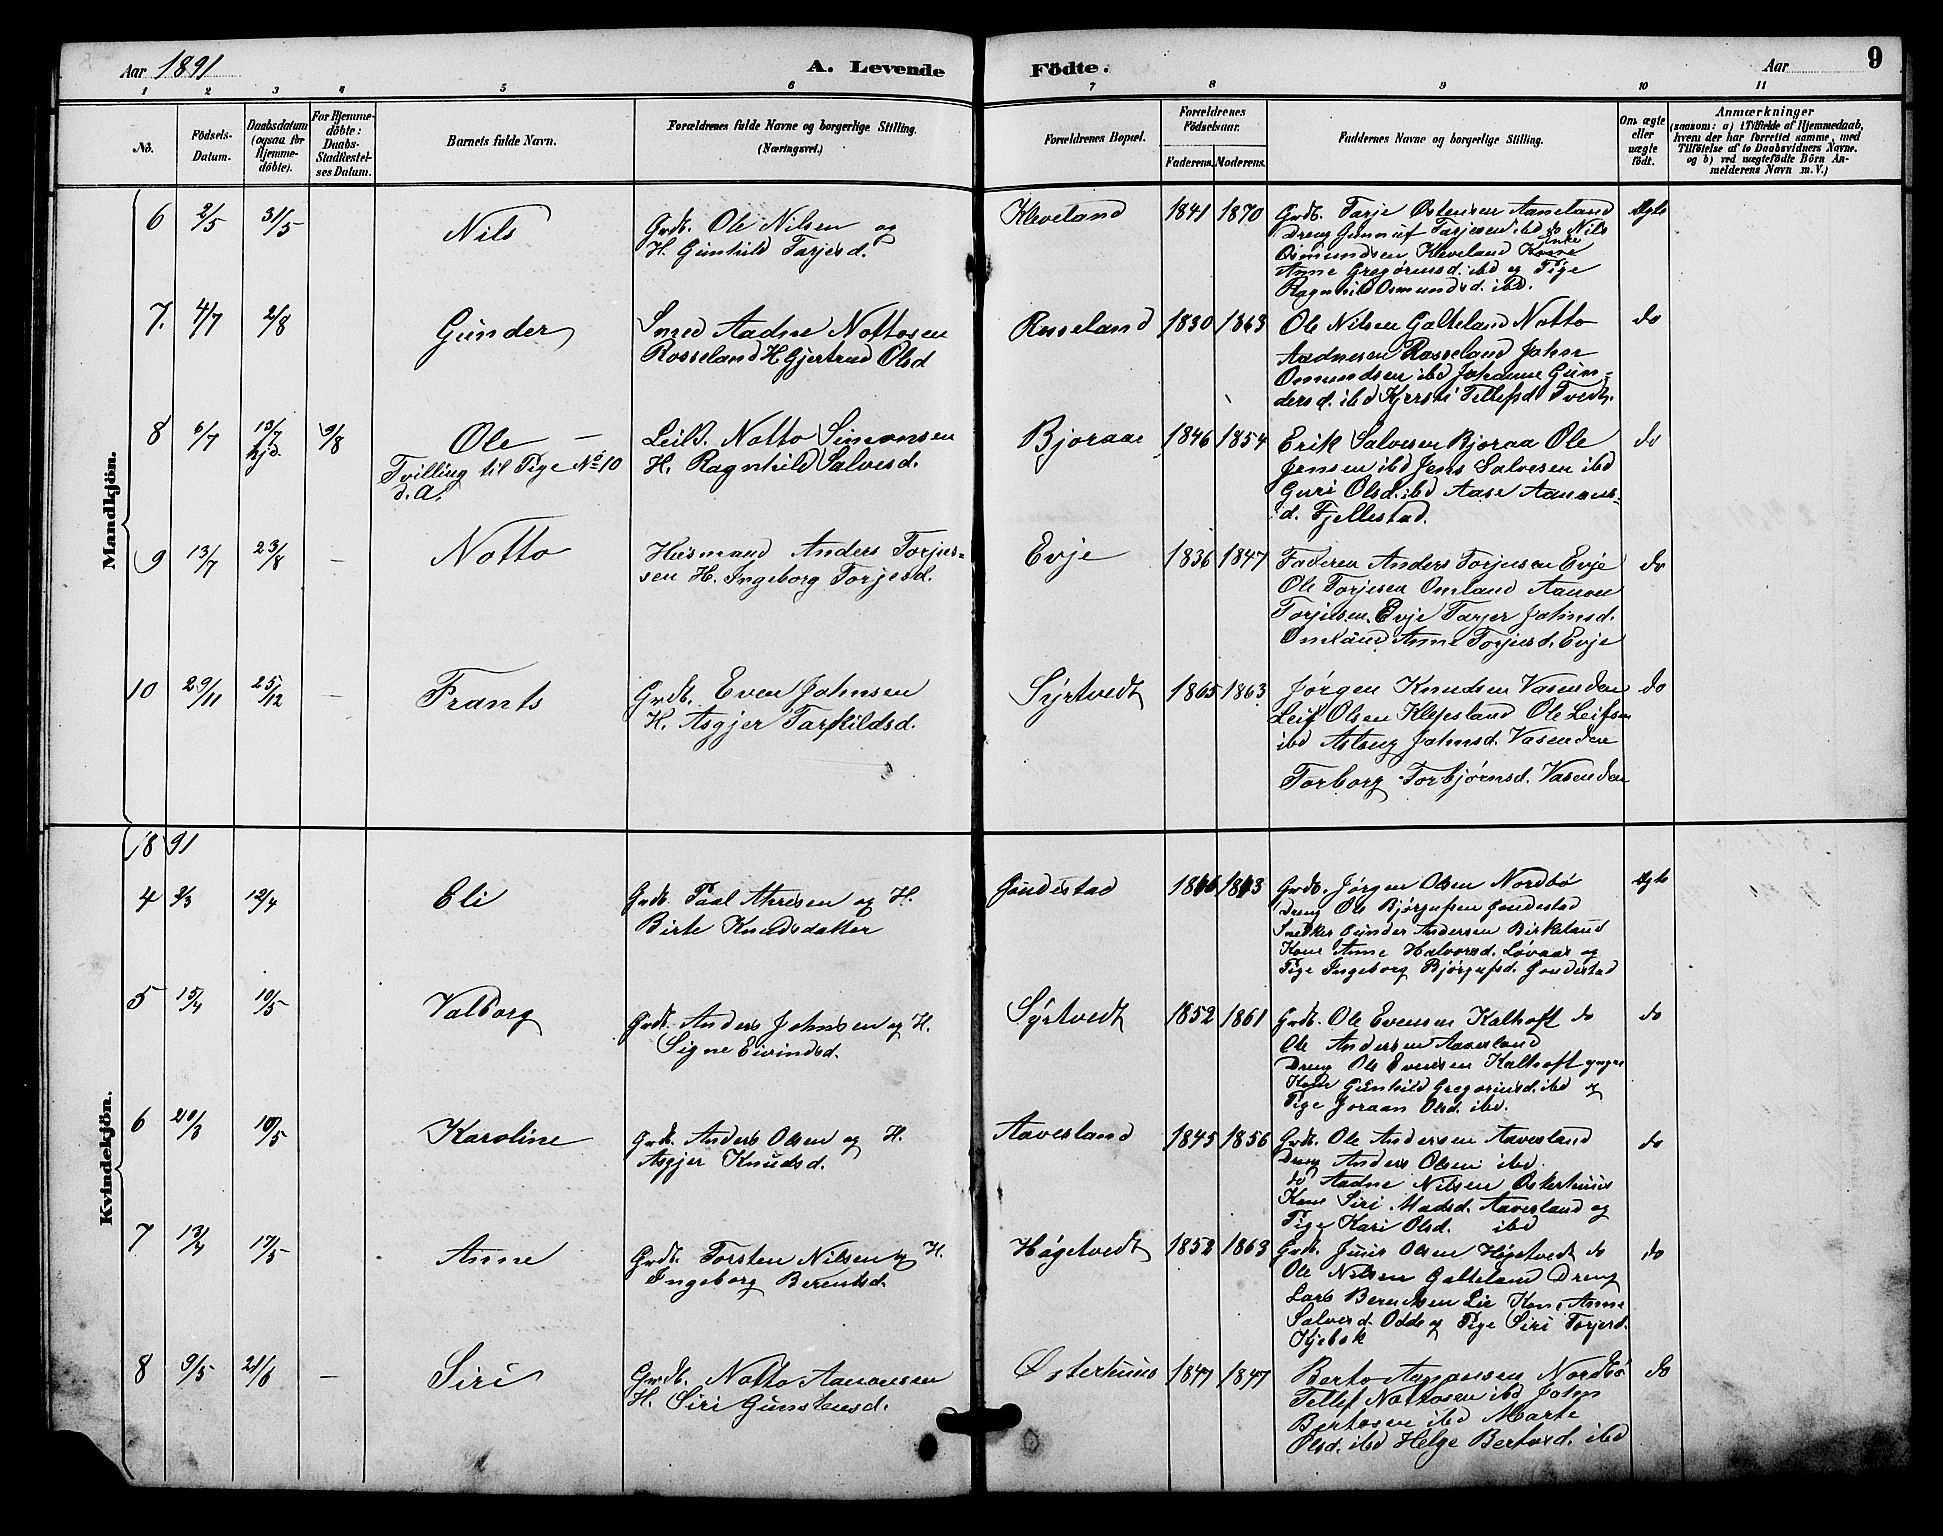 Aar 1891
A. Levende Födte.
Aar 9
1 2 3 4 5 6 7 8 9 10 11
No.
Födsels-Datum.
Daabsdatum (ogsaa for Hjemme-döbte).
For Hjemme-döbte: Daabs-Stadfæstel-ses Datum.
Barnets fulde Navn.
Forældrenes fulde Navne og borgerlige Stilling. (Næringsvei.)
Forældrenes Bopæl.
Forældrenes Födselsaar.
Faderens. Moderens.
Faddernes Navne og borgerlige Stilling.
Om ægte eller uægte födt.
Anmærkninger
(saasom: a) i Tilfælde af Hjemmedaab,
hvem der har forrettet samme, med
Tilföielse af to Daabsvidners Navne.
og b) ved uægtefödte Börn An-
melderens Navn m. V.)
Mandkjön.
6 2/5 31/5 Nils
Grdb. Ole Nilsen og
H. Gunhild Tarjesd.
Kleveland 1841 1870
Grdb. Tarje Østensen Aaneland
Dreng Gunnuf Tarjesen ibd do Nils
Osmundsen Kleveland Enke
Anne Gregoriusd. ibd og Pige
Ragnhild Osmundsd. ibd.
Ægte
7. 4/7 2/8 Gunder
Smed Aadne Nottosen
Rosseland H. Gjertrud Olsd
Rosseland 1830 1863
Ole Nilsen Galteland Notto
Aadnesen Rosseland John
Omundsen ibd Johanne Gun-
dersd. ibd Kjersti Tellefsd Tvedt.
do
8 6/7 13/7 hjd. 9/8 Ole –
Tvilling til Pige No 10
d. A.
Leil. Notto Simonsen
H. Ragnhild Salvesd.
Bjoraae 1846 1854
Erik Salvesen Bjoraa Ole
Jensen ibd Jens Salvesen ibd
Guri Olsd. ibd Aase Aanens-
d. Fjellestad.
do
9 13/7 23/8 – Notto
Husmand Anders Torjus-
sen H. Ingeborg Torjesd.
Evje 1836 1847
Faderen Anders Torjusen Evje
Ole Torjesen Omland Aanon
Torjusen Evje Tarjer Johnsd.
Omland Anne Torjusd. Evje
do
10 29/11 25/12 – Frants
Grdb. Even Johnsen
H. Asgjer Tarkildsd.
Syrtvedt 1865 1863
Jørgen Knudsen Vasenden
Leif Olsen Klepsland Ole Leifsen
ibd Astrug Johnsd. Vasenden
Torborg Torbjørnsd. Vasenden
do
Kvindekjön.
1891
4 2/3 12/4 Eli
Grdb. Paal Atresen og H.
Birte Knudsdatter
Gaudestad 1866 1863
Grdb. Jørgen Olsen Nordbø
Dreng Ole Bjørgufsen Gaudestad
Snedker Gunder Andersen Birkeland
Kone Anne Halvorsd. Løvaas og
Pige Ingeborg Bjørgufsd. Gaudestad
Ægte
5 15/4 10/5 Valborg
Grdb. Anders Johnsen og H.
Signe Eivindsd.
Syrtvedt 1852 1861
Grdb. Ole Evensen Kalhoft do
Ole Andersen Aavesland
Dreng Ole Evensen Kalhoft yngre
Kone Gunhild Gregoriusd. ibd og
Pige Joraan Olsd. ibd.
do
6 20/3 10/5 Karoline
Grdb. Anders Olsen og H.
Asgjer Knudsd.
Aavesland 1845 1856
Grdb. Ole Andersen Aavesland
Dreng Anders Olsen ibd.
do Aadne Nilsen Osterhuus
Kone Siri Madsd. Aavesland og
Pige Kari Olsd. ibd
do
7 13/4 17/5 Anne
Grdb. Torsten Nilsen og H.
Ingeborg Berentsd.
Høgetvedt 1852 1863
Grdb. Olsen Høgetvedt do
Ole Nilsen Galteland Dreng
Lars Berentsen Lie Kone Anne
Salvesd. Odde og Pige Siri Torjersd.
Kjebæk
do
8 9/5 21/6 – Siri
Grdb. Notto Aanonsen
H. Siri Gunstensd.
Østerhuus 1847 1847
Berto Aanonsen Nordbø
Tellef Nottosen ibd John
Bertosen ibd Marte
Olsd. ibd Helge Bertosd. ibd
do